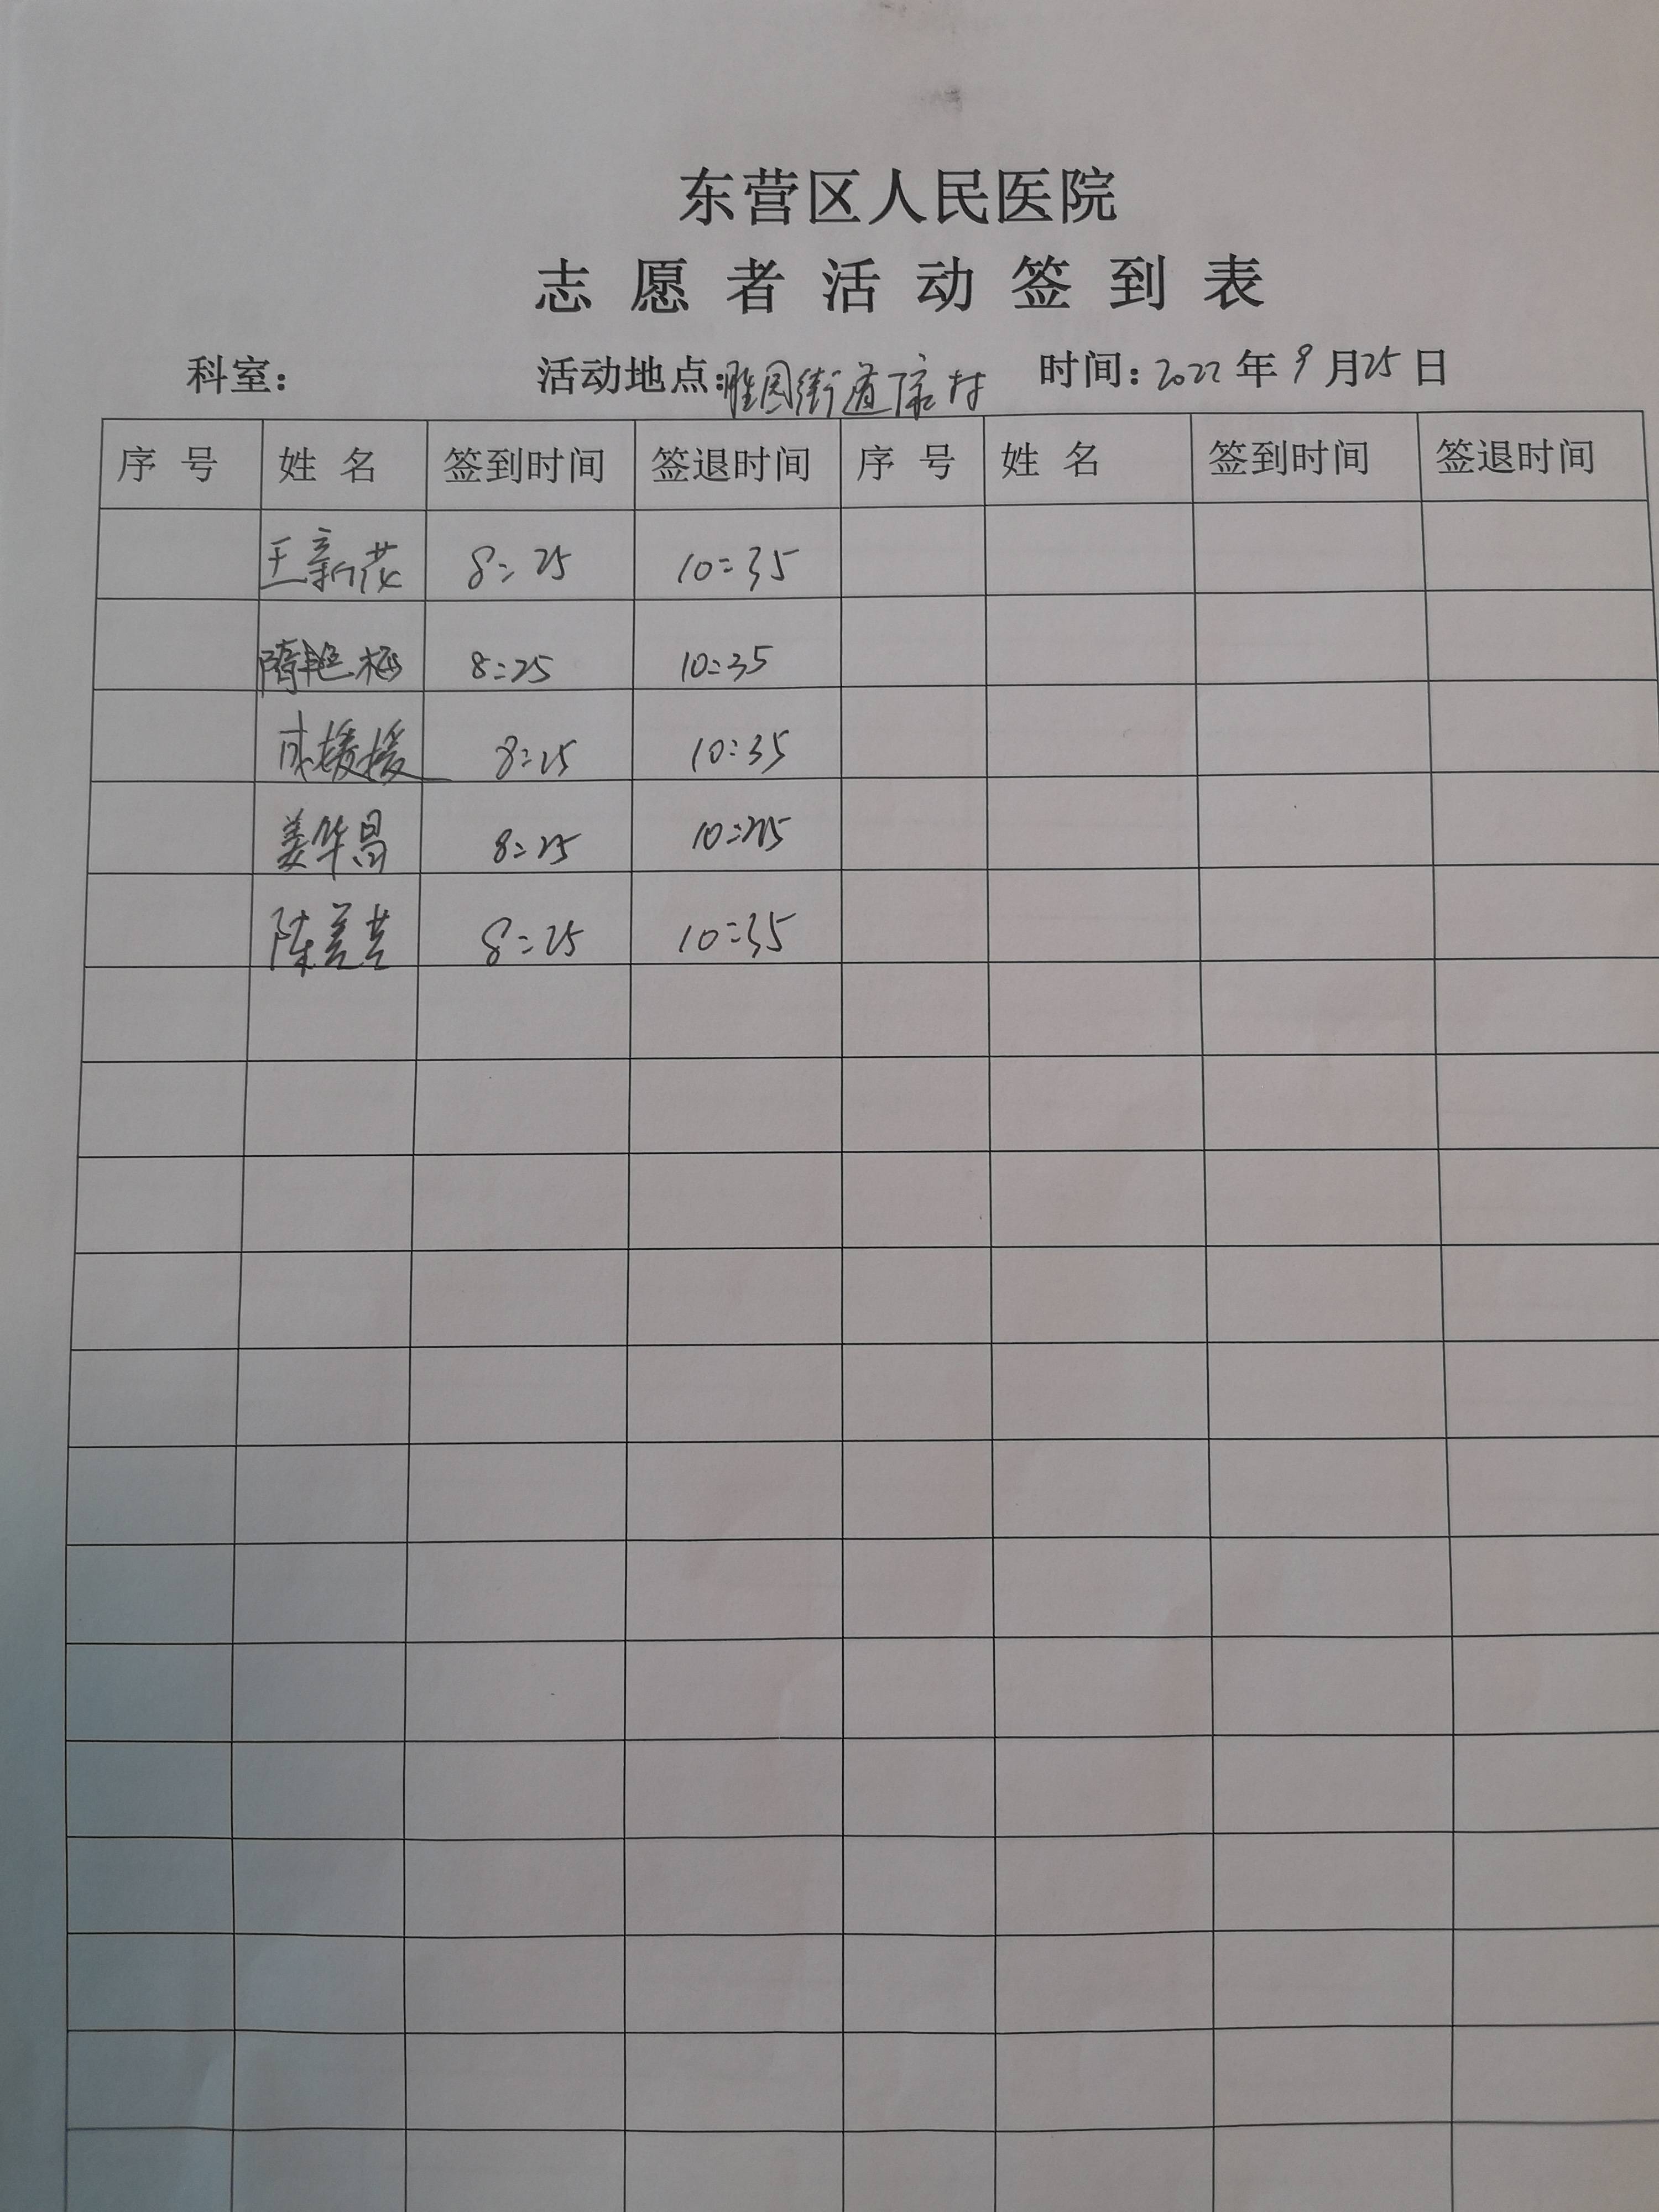 东营区人民医院
志愿者活动签到表
科室： 活动地点：胜园街道 村 时间：2022年9月25日
序号 姓名 签到时间 签退时间 序号 姓名 签到时间 签退时间
王新花 8:25 10:35
隋艳梅 8:25 10:35
成媛媛 8:25 10:35
姜华昌 8:25 10:35
陈美芸 8:25 10:35